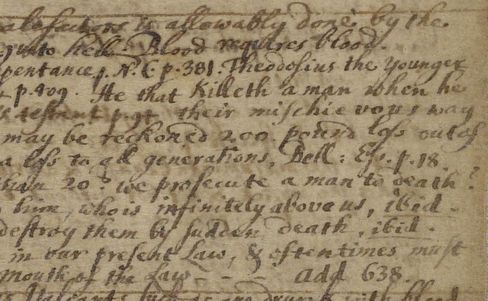 alefactors is allowably done by the
quite hell. Blood requires blood.
pentance, N. E p. 381. Theodosius the Younger
p. 409. He that Killeth a man when he
p. 94 their mischievous way
may be reckoned 200 pound loss out of
a loss to all generations, Bell: Ess. p. 18.
than 20s? we prosecute a man to death?
him, who is infinitely above us, ibid.
destroy them by sudden death, ibid.
in our present Law, & oftentimes must
mouth of the Law - - add 638.